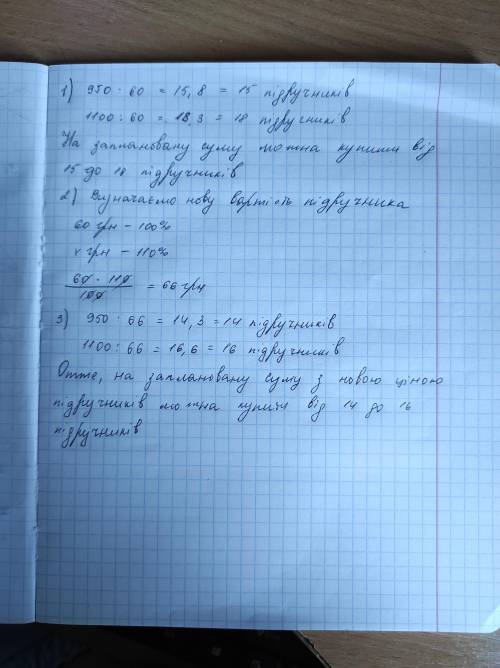 1) 950 : 60 = 15,8 = 15 підручників
1100 : 60 = 18,3 = 18 підручників
На заплановану суму можна купити від
15 до 18 підручників
2) Визначаємо нову вартість підручника
60 грн - 100%
х грн - 110%
60 · 110
100
= 66 грн
3) 950 : 66 = 14,3 = 14 підручників
1100 : 66 = 16,6 = 16 підручників
Отже, на заплановану суму з новою ціною
підручників можна купити від 14 до 16
підручників